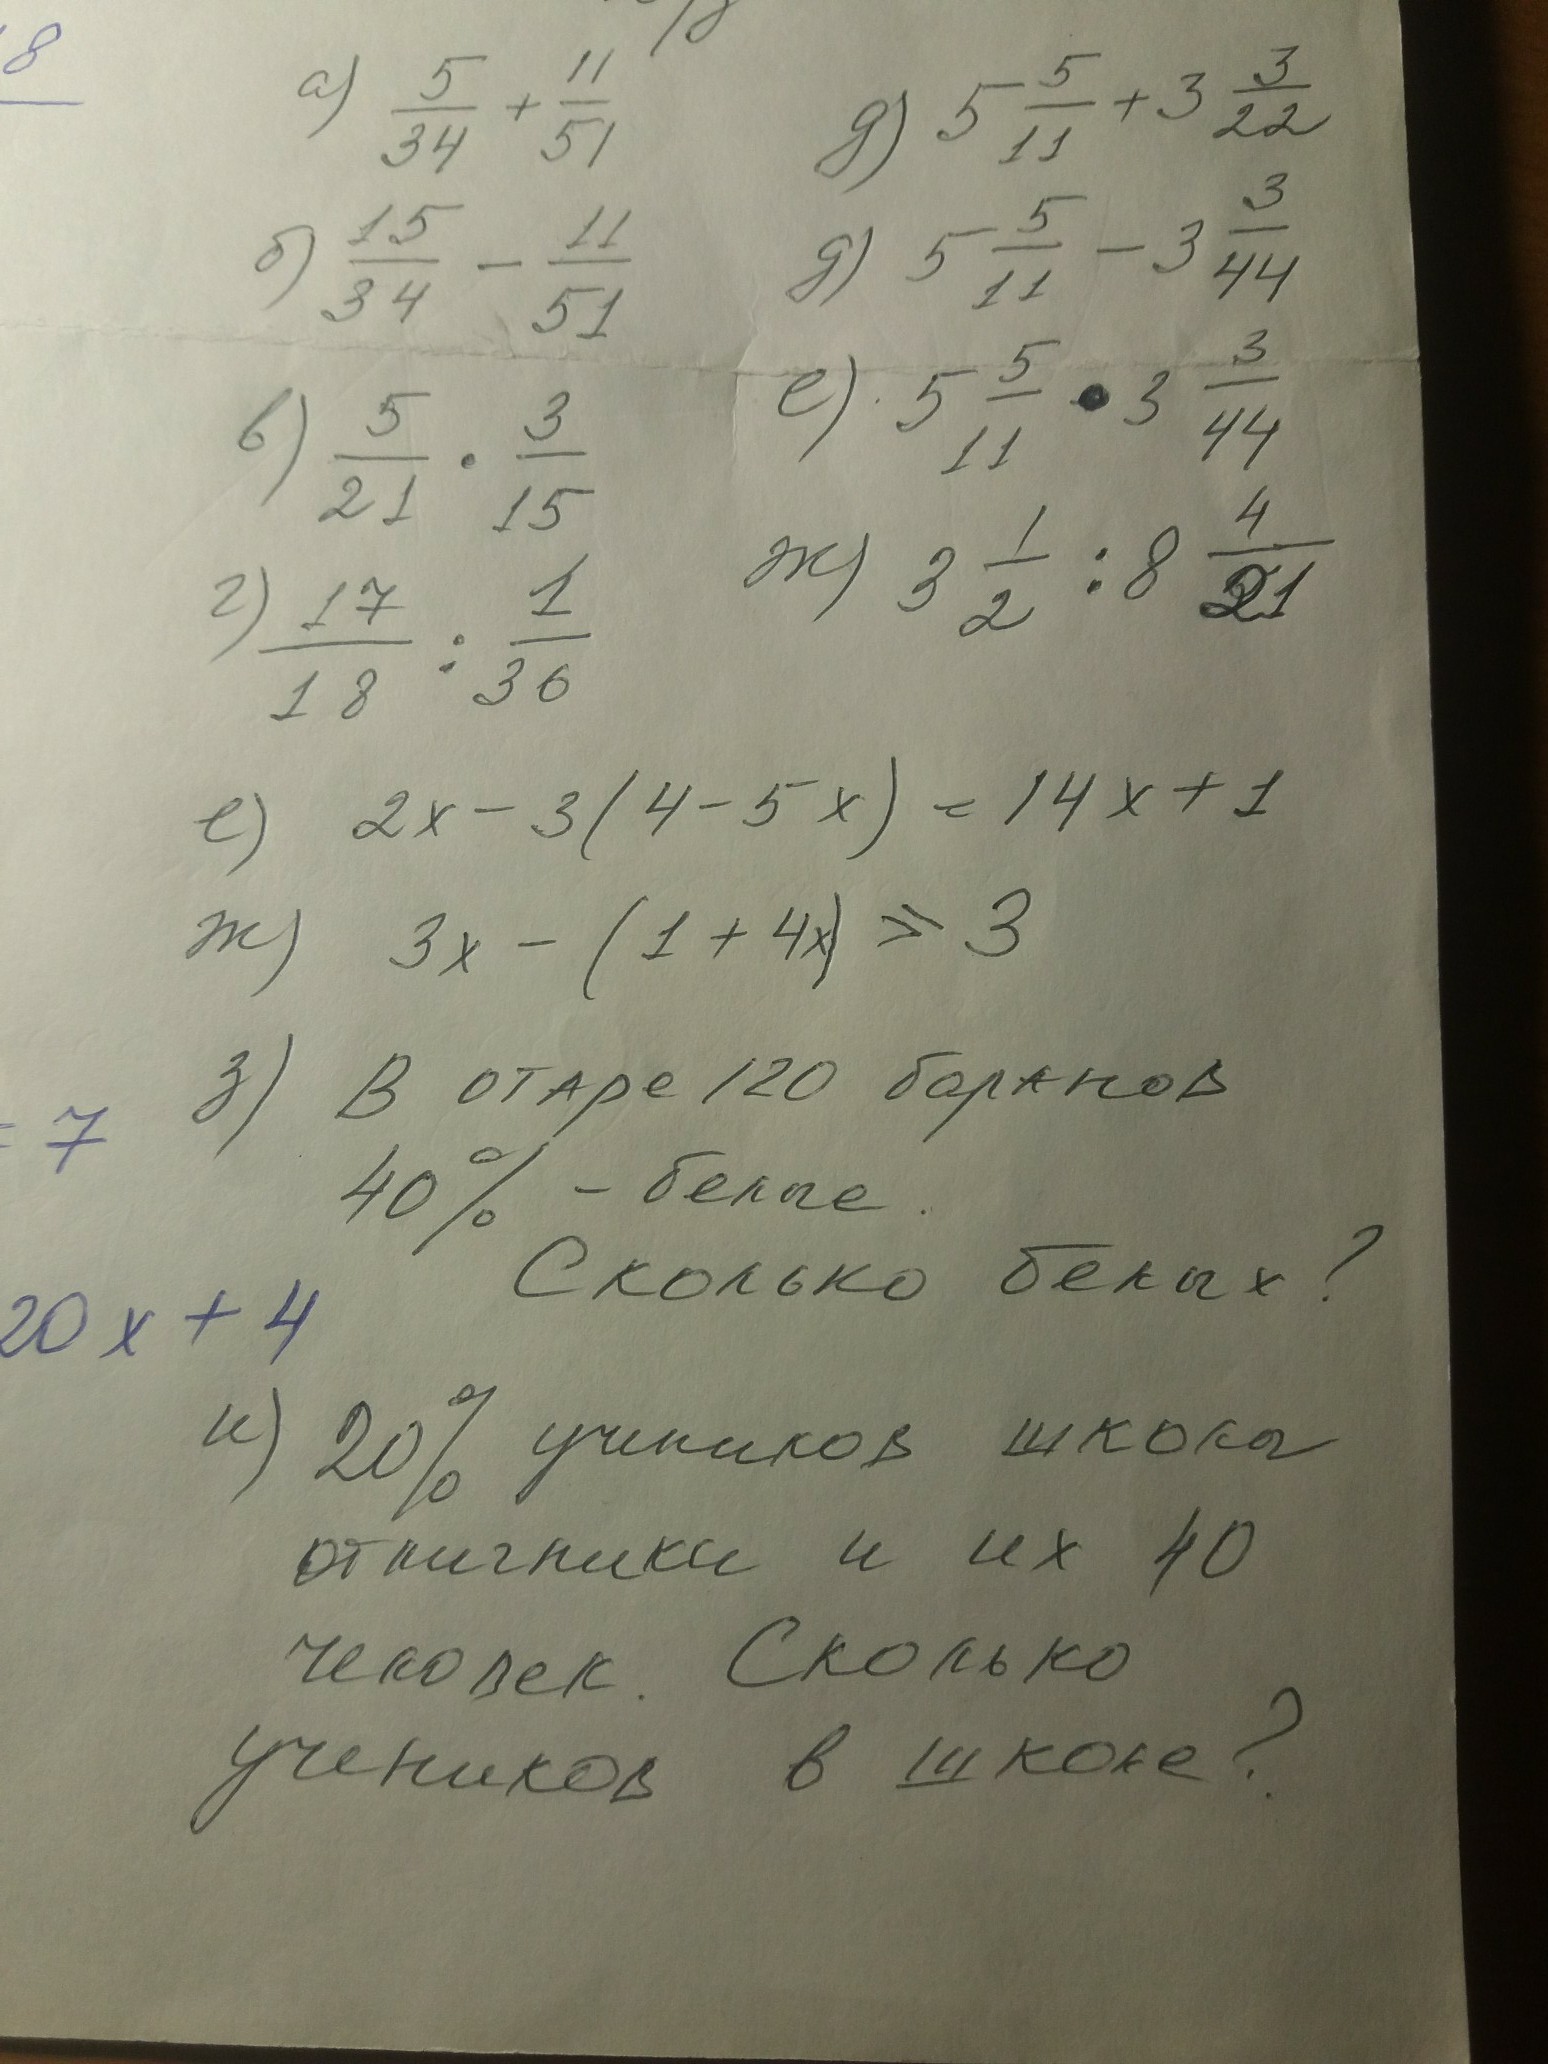 8
а) 5/34 + 11/51
б) 15/34 - 11/51
в) 5/21 · 3/15
г) 17/18 : 1/36
д) 5 5/11 + 3 3/22
д) 5 5/11 - 3 3/44
е) 5 5/11 · 3 3/44
ж) 3 1/2 : 8 4/21
е) 2x - 3(4 - 5x) = 14x + 1
ж) 3x - (1 + 4x) ⩾ 3
з) В отаре 120 баранов
40% - белые.
Сколько белых?
= 7
20x + 4
и) 20% учеников школы
отличники и их 40
человек. Сколько
учеников в школе?